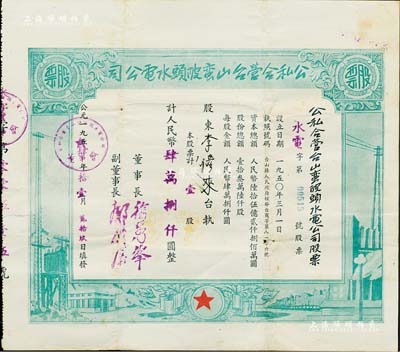 上海陽明拍賣
公私合營台山蛮陂頭水電公司
股票
股票
公私合營台山蛮陂頭水電公司股票
水電字第 00515 號股票
設立日期 一九五〇年三月一日
資本總額 人民幣陸拾伍億貳仟捌佰萬圓
股份總額 壹拾叁萬陸仟股
每股金額 人民幣肆萬捌仟圓
股東 李 執
本股票計 壹 股
計人民幣肆萬捌仟圓整
董事長
副董事長
公元一九五 年 拾 月 貳拾 日填發